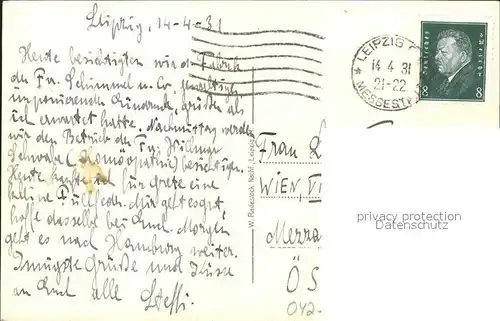 Leipzig, 14-4-31
Heute besichtigten wir d. Fabrik
der Fa. Schimmel u. Co, gewaltig
imponierender Eindruck, größer als
ich erwartet hatte. Nachmittag werden
wir den Betrieb der Fa.
Schwabe (Homöopathie) besichtigen.
Heute kaufte ich für Grete eine
kleine Füllfeder. Mir geht es gut,
hoffe dasselbe bei Euch. Morgen
geht es nach Hamburg weiter.
Innigste Grüße und Küsse
an Euch alle Steffi
W. Rebestock Nachf., Leipzig
LEIPZIG
14 4 31
21-22
MESSEST
Deutsches Reich
8 8
Frau
WIEN, VI
Ö S
privacy protection
Datenschutz